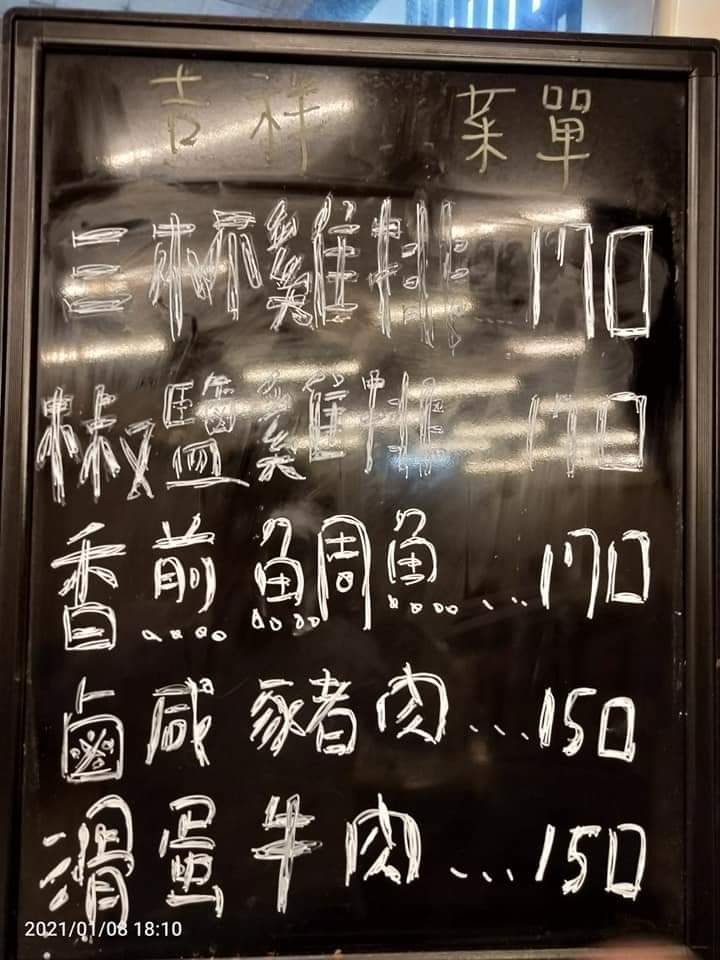 吉祥 菜單
三杯雞排 170
椒鹽雞排 170
香煎鯛魚...170
鹵咸豬肉...150
滑蛋牛肉...150
2021/01/08 18:10